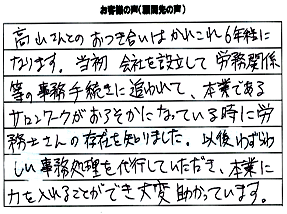 お客様の声(顧問先の声)
高山さんとのおつき合いはかれこれ6年程に
なります。当初会社を設立して労務関係
等の事務手続きに追われて、本業である
サロンワークがおろそかになっている時に労
務士さんの存在を知りました。以後わずらわ
しい事務処理を代行していただき、本業に
力を入れることができ大変助かっています。